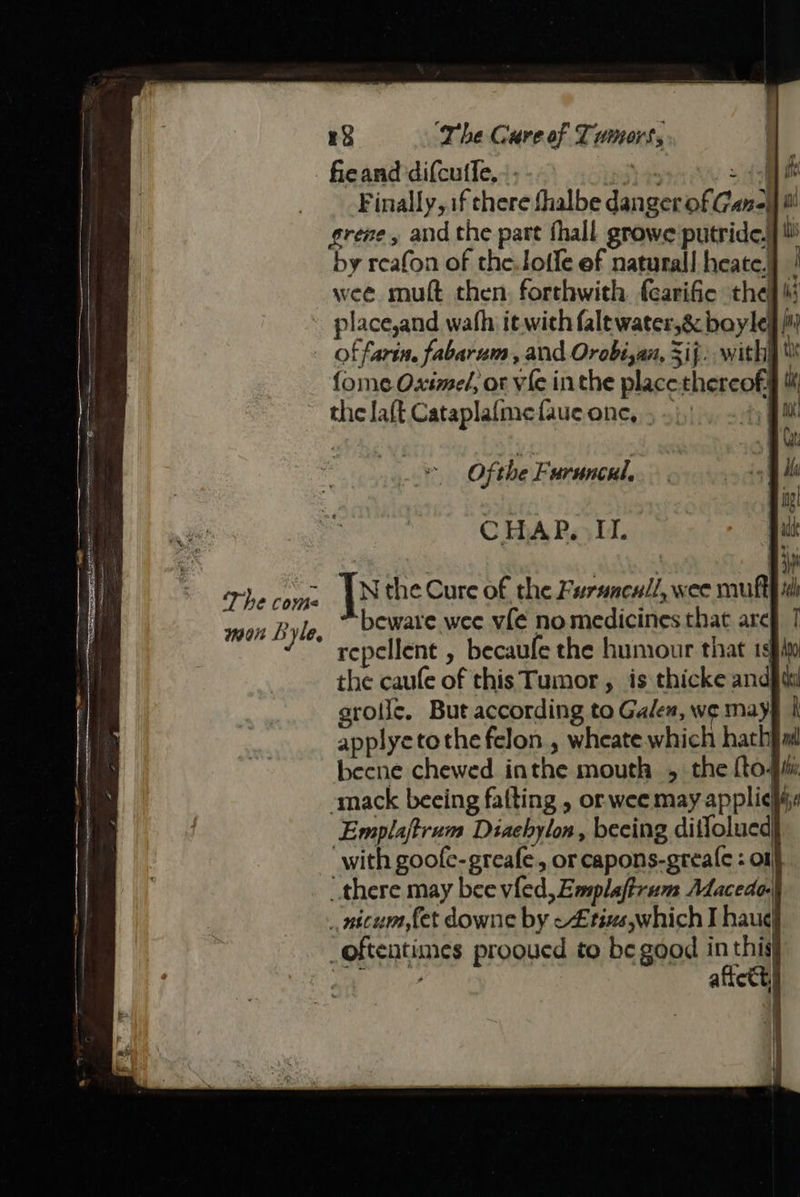 18 The Cure of Tumors,
fie and discusse.
Finally, if there shalbe danger of Gan-
grene, and the part shall growe putride,
by reason of the losse of naturall heate.
wee must then forthwith scarifie the
place, and wash it with salt water, & boyle
of farin. fabarum, and Orobi, an, ʒij. with
some Oximel, or vse in the place thereof
the last Cataplasme saue one.
Of the Furuncul.
CHAP. II.
The com-
mon Byle.
IN the Cure of the Furuncull, wee must
beware wee vse no medicines that are
repellent, because the humour that is
the cause of this Tumor, is thicke and
grosse. But according to Galen, we may
applye to the felon, wheate which hath
beene chewed in the mouth, the sto-
mack beeing fasting, or wee may applie
Emplastrum Diachylon, beeing dissolued
with goose-grease, or capons-grease: or
there may bee vsed, Emplastrum Macedo-
nicum, set downe by Ætius, which I haue
oftentimes prooued to be good in this
affect,